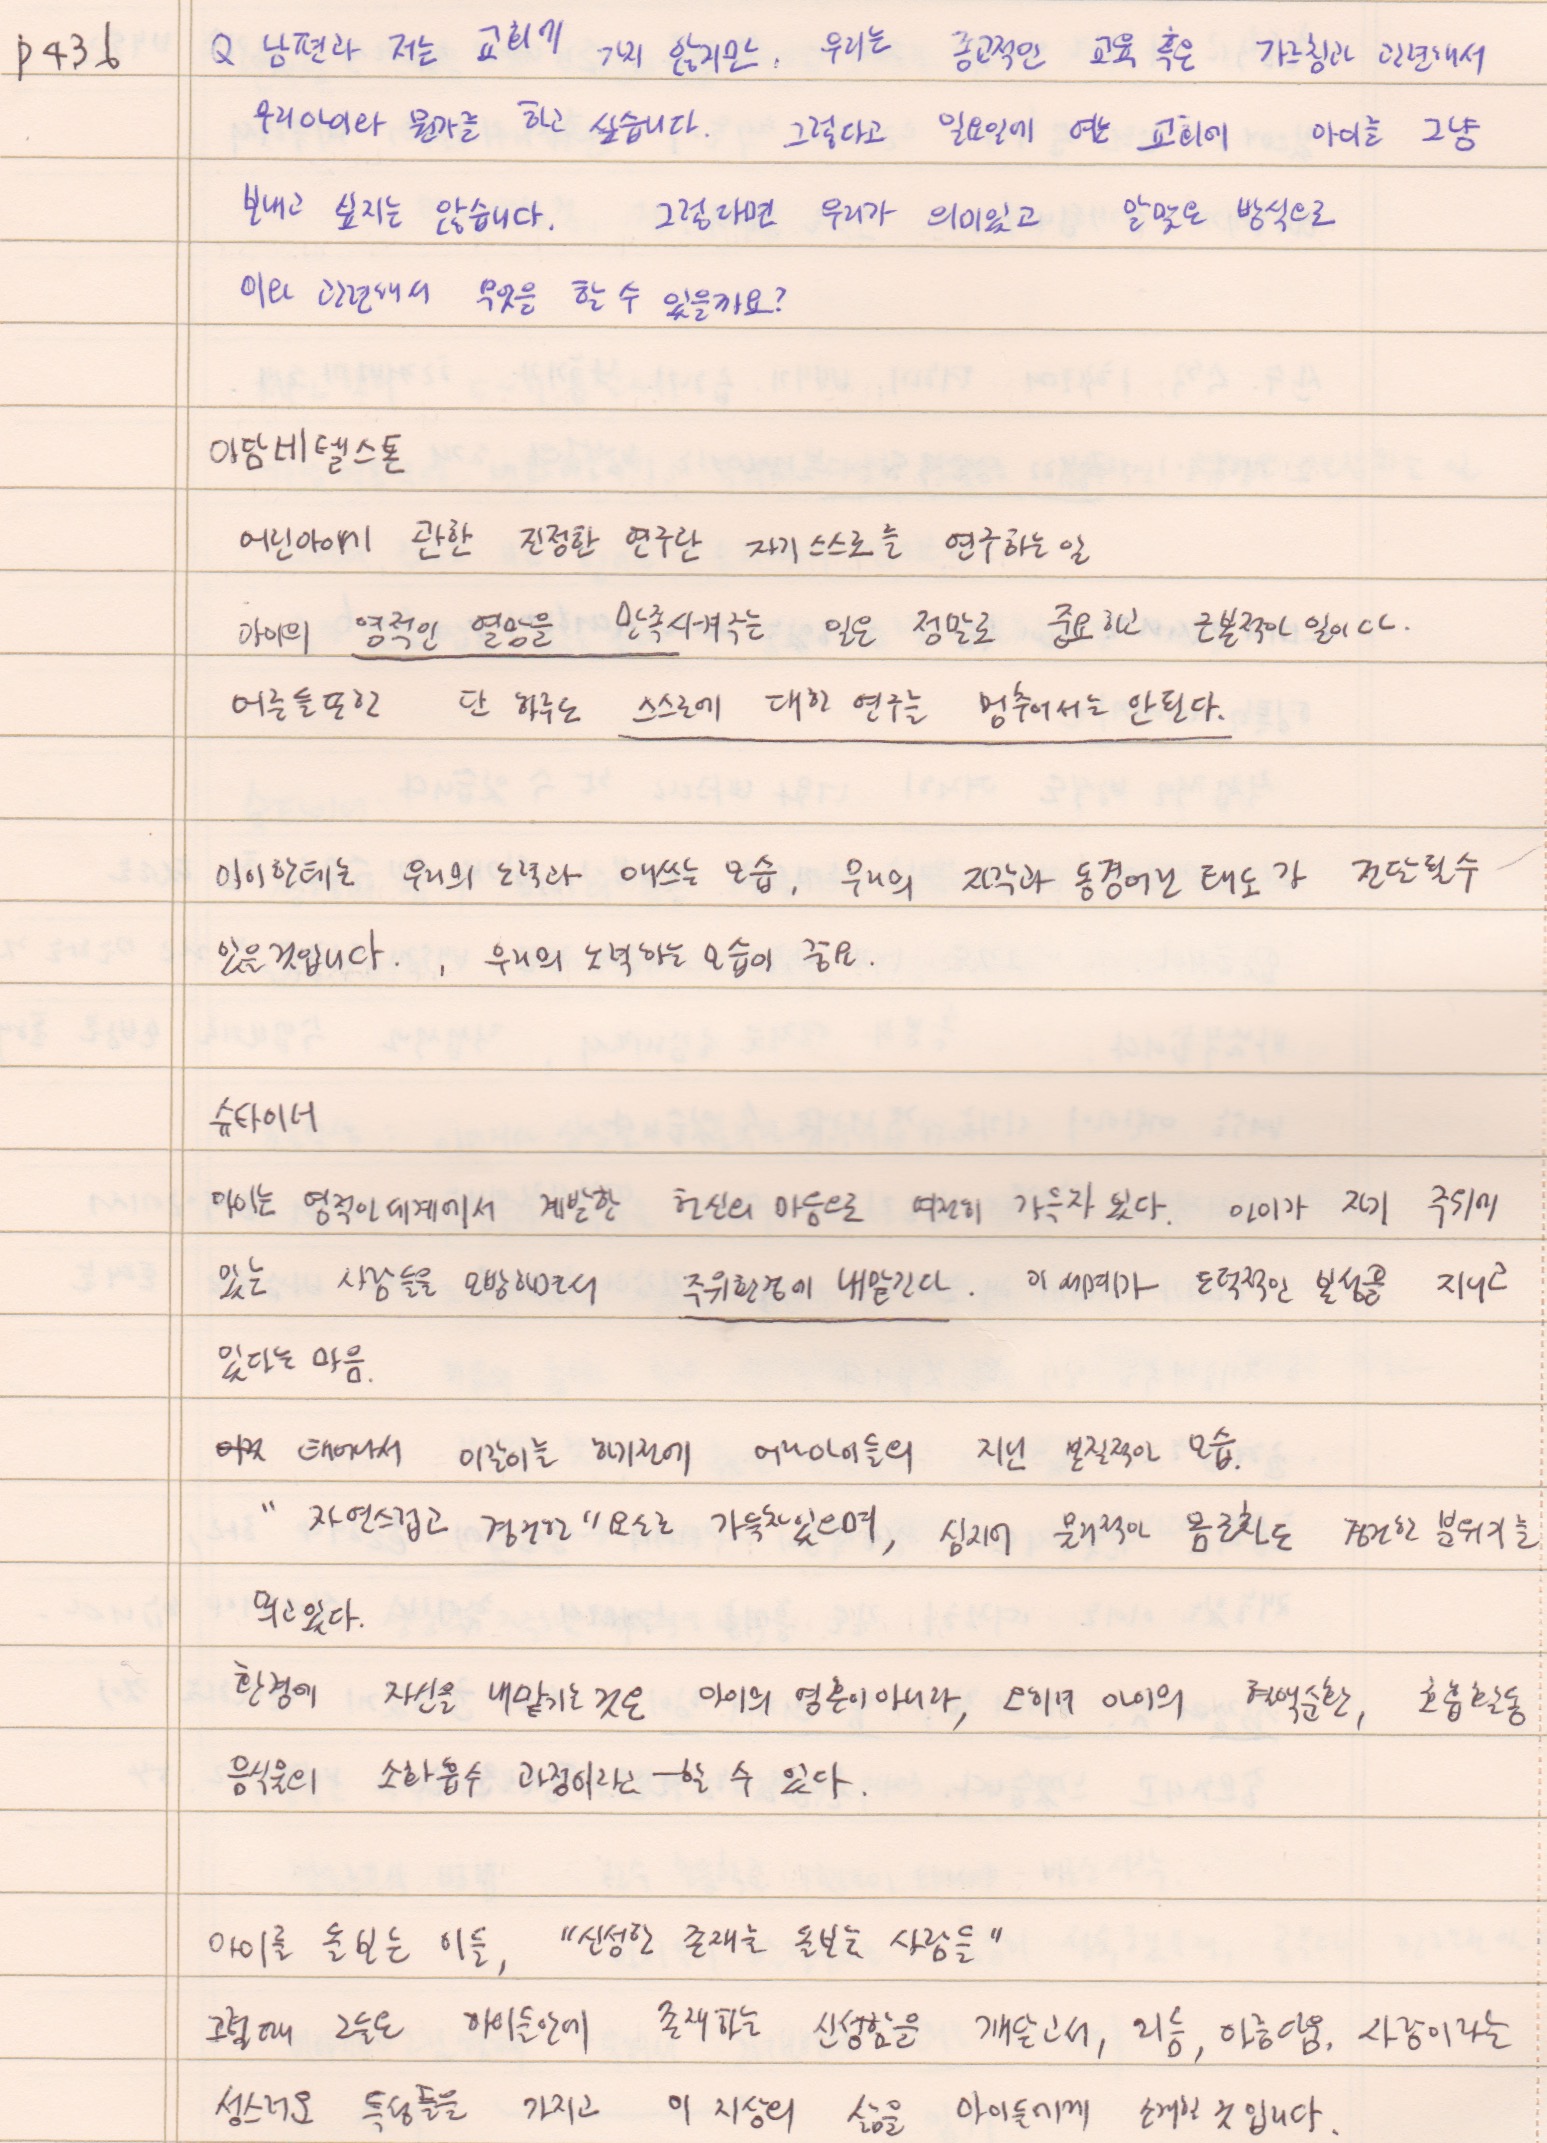 p436
Q 남편과 저는 교회에 가지 않지만, 우리는 종교적인 교육 혹은 가르침과 관련해서
우리아이와 뭔가를 하고 싶습니다. 그렇다고 일요일에 여는 교회에 아이를 그냥
보내고 싶지는 않습니다. 그렇다면 우리가 의미있고 알맞은 방식으로
이와 관련해서 무엇을 할 수 있을까요?
아담비텔스톤
어린아이에 관한 진정한 연구란 자기 스스로를 연구하는 일
아이의 영적인 열망을 만족시켜주는 일은 정말로 중요하고 근본적인 일이다.
어른들또한 단 하루도 스스로에 대한 연구를 멈추어서는 안된다.
아이한테는 우리의 노력과 애쓰는 모습, 우리의 지각과 동경어린 태도가 전달될수
있을것입니다. , 우리의 노력하는 모습이 중요.
슈타이너
아이는 영적인세계에서 계발한 헌신의 마음으로 여전히 가득차 있다. 아이가 자기 주위에
있는 사람들을 모방하면서 주위환경에 내맡긴다. 이 세계가 도덕적인 본성을 지니고
있다는 마음.
태어나서 이갈이를 하기전에 어린아이들의 지닌 본질적인 모습.
" 자연스럽고 경건한 " 요소로 가득차있으며, 심지어 물리적인 몸조차도 경건한 분위기를
띄고있다.
환경에 자신을 내맡기는것은 아이의 영혼이아니라, 오히려 아이의 혈액순환, 호흡활동
음식물의 소화흡수 과정이라고 할 수 있다.
아이를 돌보는 이들, "신성한 존재를 돌보는 사람들"
그럴때 그들은 아이들안에 존재하는 신성함을 깨닫고서, 리듬, 아름다움, 사랑이라는
성스러운 특성들을 가지고 이 지상의 삶을 아이들에게 소개할 것입니다.